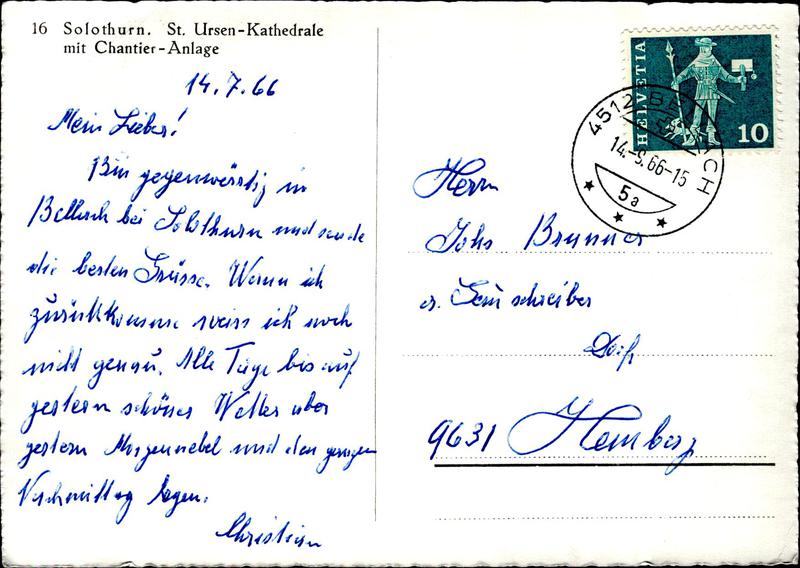 16 Solothurn. St. Ursen-Kathedrale
mit Chantier-Anlage
14.7.66
Mein Lieber!
Bin gegenwärtig in
Bellach bei Solothurn und sende
die besten Grüsse. Wann ich
zurückkomme weiss ich noch
nicht genau. Alle Tage bis auf
gestern schönes Wetter aber
gestern Morgennebel und den ganzen
Nachmittag Regen.
Christian
HELVETIA
10
4512 BELLACH
14.-9.66-15
5a
Herrn
Johs Brunner
a. schreiber
Dorf
9631 Hemberg